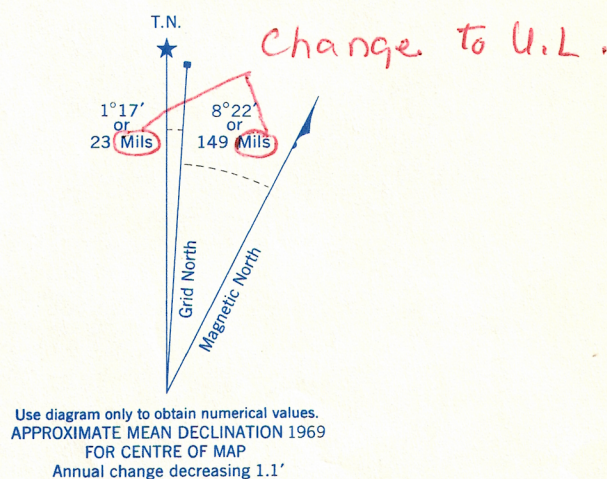 T.N.
Change to U.L.
1°17'
or
23 Mils
8°22'
or
149 Mils
Grid North
Magnetic North
Use diagram only to obtain numerical values.
APPROXIMATE MEAN DECLINATION 1969
FOR CENTRE OF MAP
Annual change decreasing 1.1'